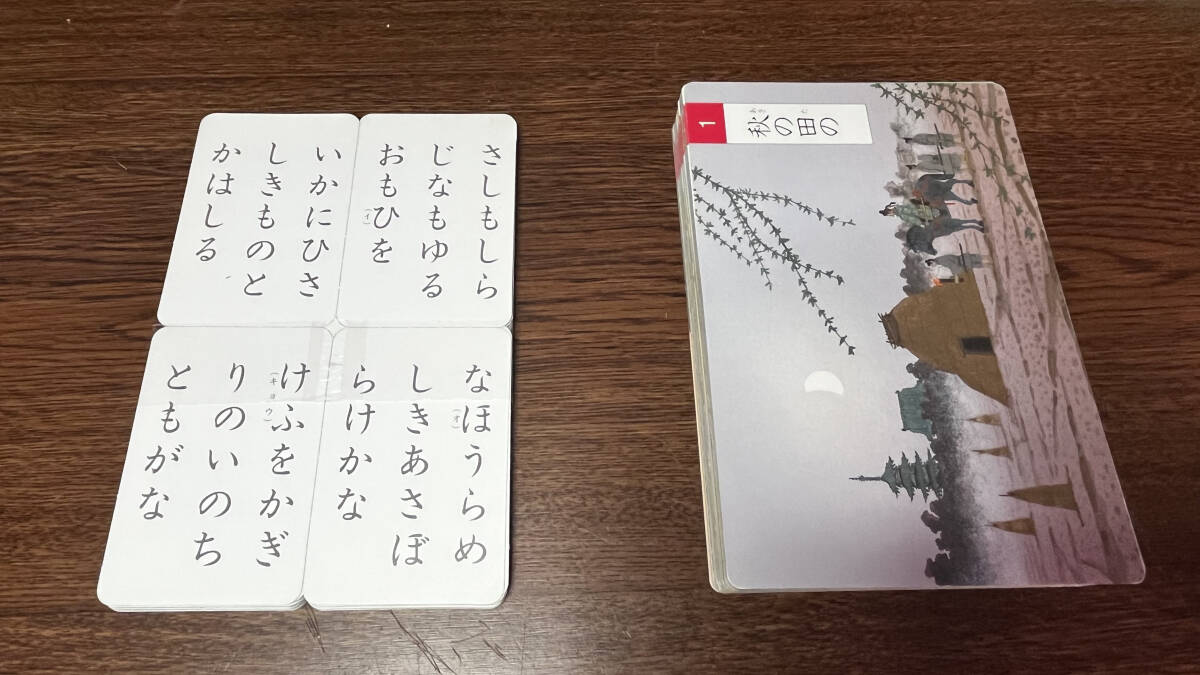 さしもしら
じなもゆる
おもひを
(イ)
いかにひさ
しきものと
かはしる
なほうらめ
(オ)
しきあさぼ
らけかな
けふをかぎ
(キョウ)
りのいのち
ともがな
1
秋の田の
あき た